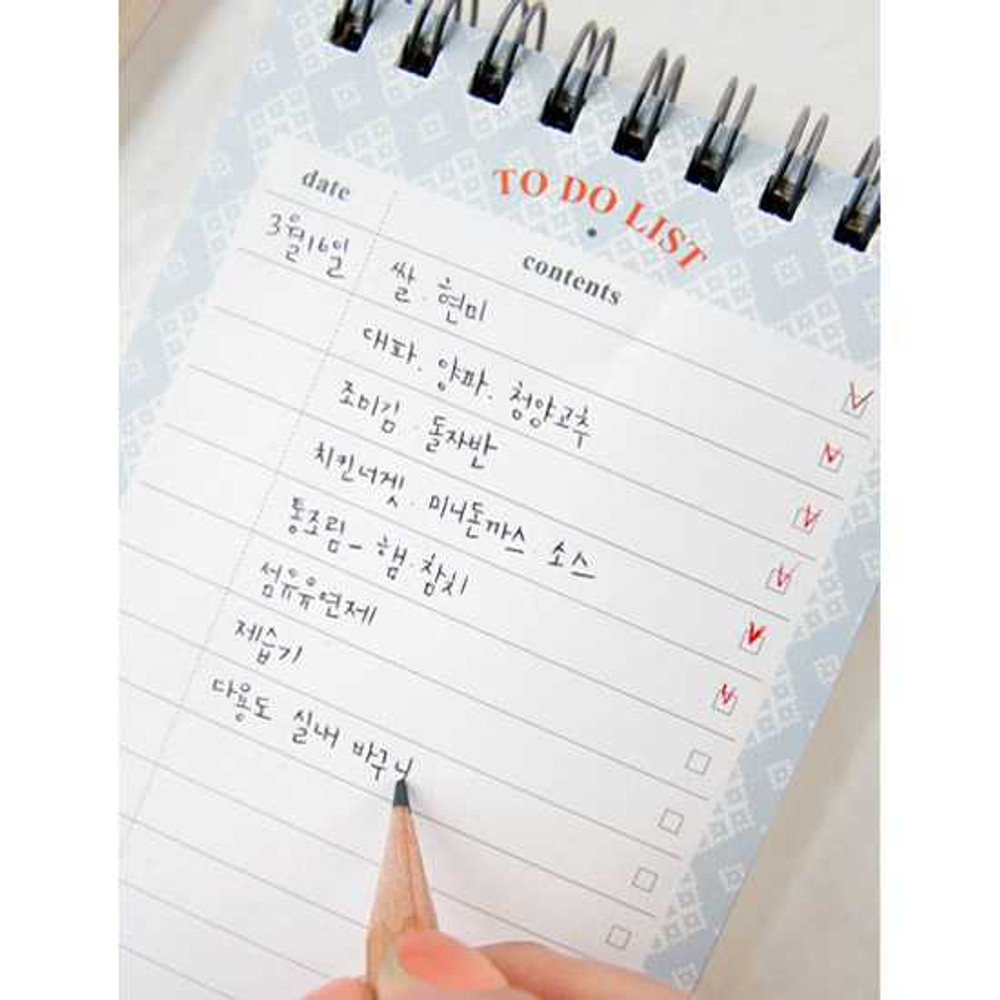 TO DO LIST
date
contents
3월16일
쌀. 현미
대파. 양파. 청양고추
조미김. 돌자반
치킨너겟. 미니돈까스. 소스
통조림_ 햄.참치
섬유유연제
제습기
다용도 실내 바구니